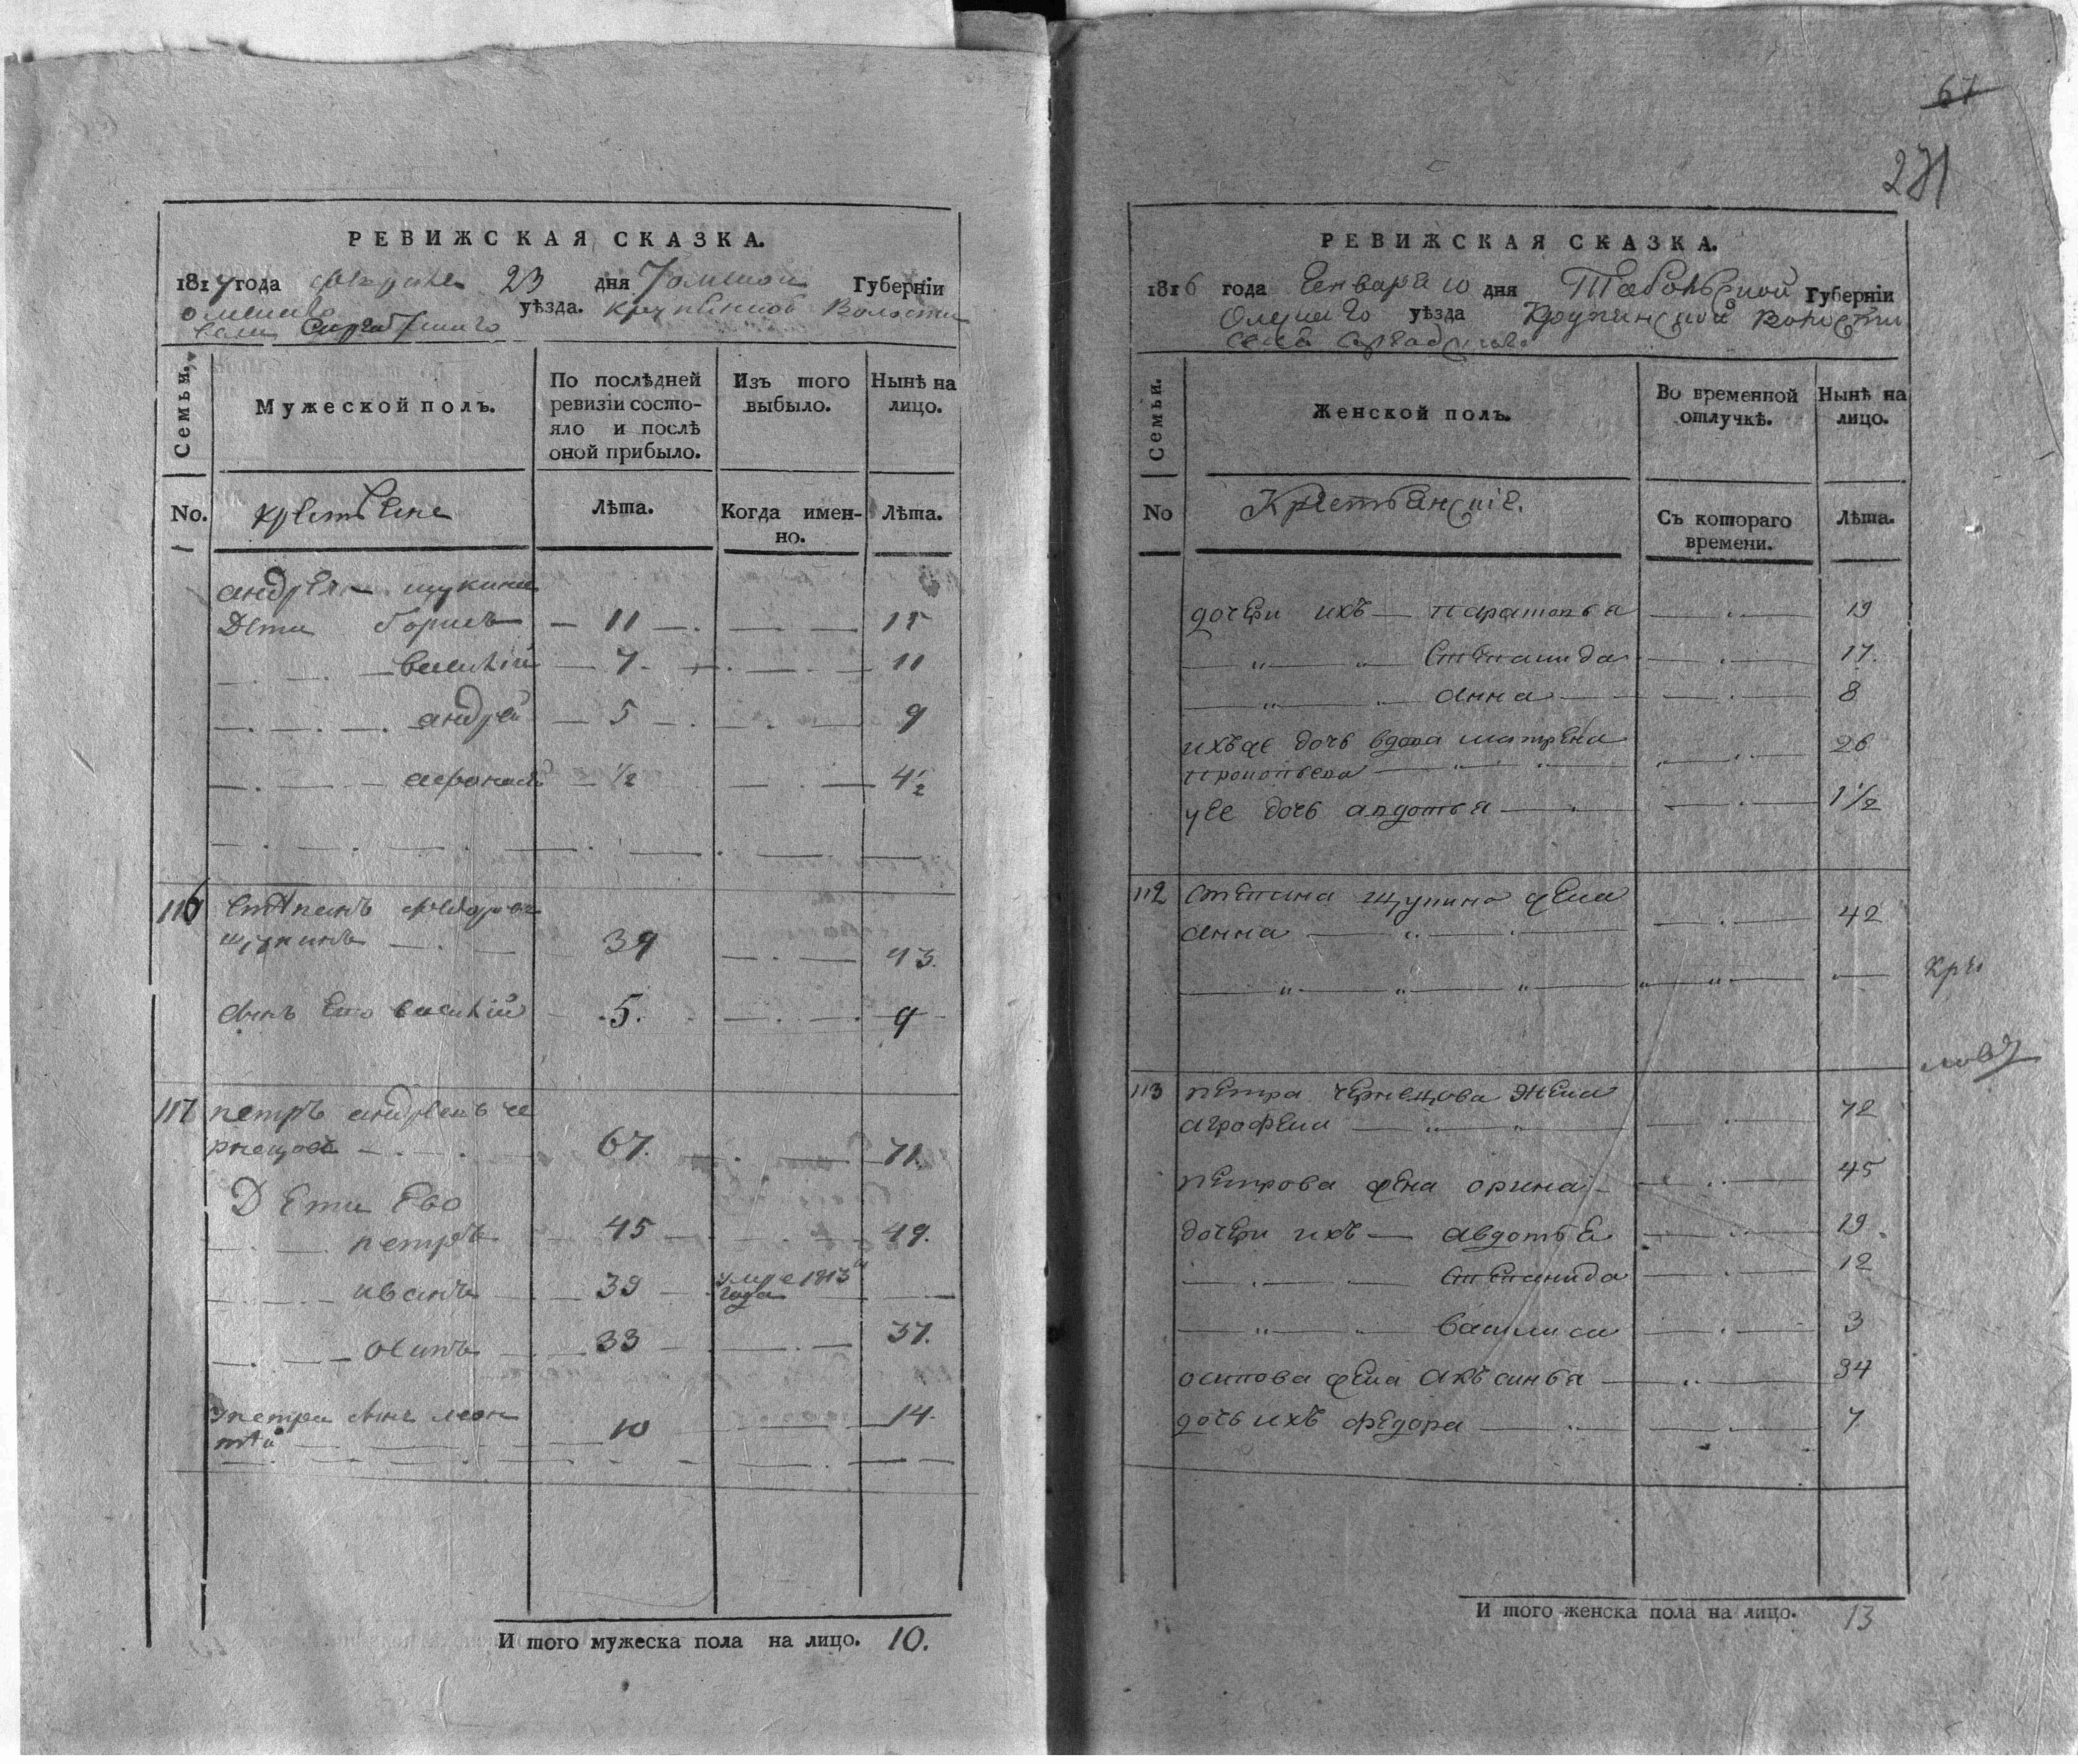 РЕВИЖСКАЯ СКАЗКА.
181 года 23 дня Томской Губерніи
омского уѣзда. Волости
села
Семьи.
Мужеской полъ.
По послѣдней ревизіи состояло и послѣ оной прибыло.
Изъ того выбыло.
Нынѣ на лицо.
No.
крестьяне
Лѣта.
Когда именно.
Лѣта.
андрея щукина
Дети борисъ 11 15
василій 7 11
андрей 5 9
афонасей ½ 4½
116 степанъ федоровъ
щукинъ 39 43.
сынъ ево василій 5. 9
117 петръ андреевъ че
рнецовъ 67. 71.
Дети Ево
петръ 45 49.
иванъ 39 умре 1813
года
осипъ 33 37.
у петра сынъ леон
тей 10 14.
И того мужеска пола на лицо. 10.
67
271
РЕВИЖСКАЯ СКАЗКА.
1816 года Генваря 10 дня Табольской Губерніи
Омскаго уѣзда Крупинской волости
села
Семьи.
Женской полъ.
Во временной отлучкѣ.
Нынѣ на лицо.
No
Крестьянскіе.
Съ котораго времени.
Лѣта.
дочери ихъ парасковья 19
степанида 17.
анна 8
ихъ же дочь вдова матрена 26
прокопьева
у ее дочь авдотья 1½
112 степана щукина жена
анна 42
113 петра чернецова жена
аграфена 72
петрова жена орина 45
дочери ихъ авдотья 19
степаниda 12
василиса 3
осипова жена акъсинья 34
дочь ихъ федора 7
И того женска пола на лицо. 13